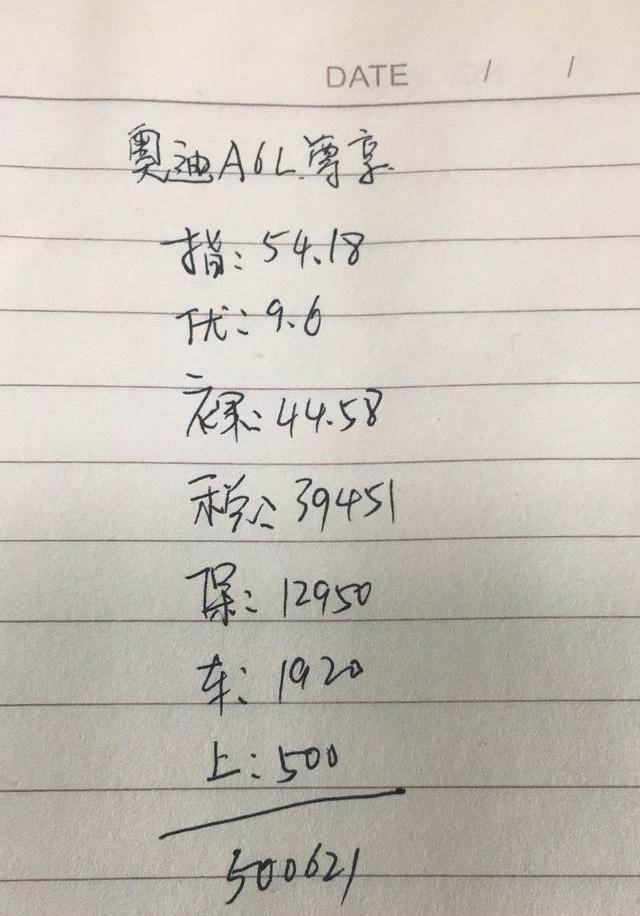 DATE / /
奥迪A6L尊享
指: 54.18
优: 9.6
裸: 44.58
税: 39451
保: 12950
车: 1920
上: 500
500621